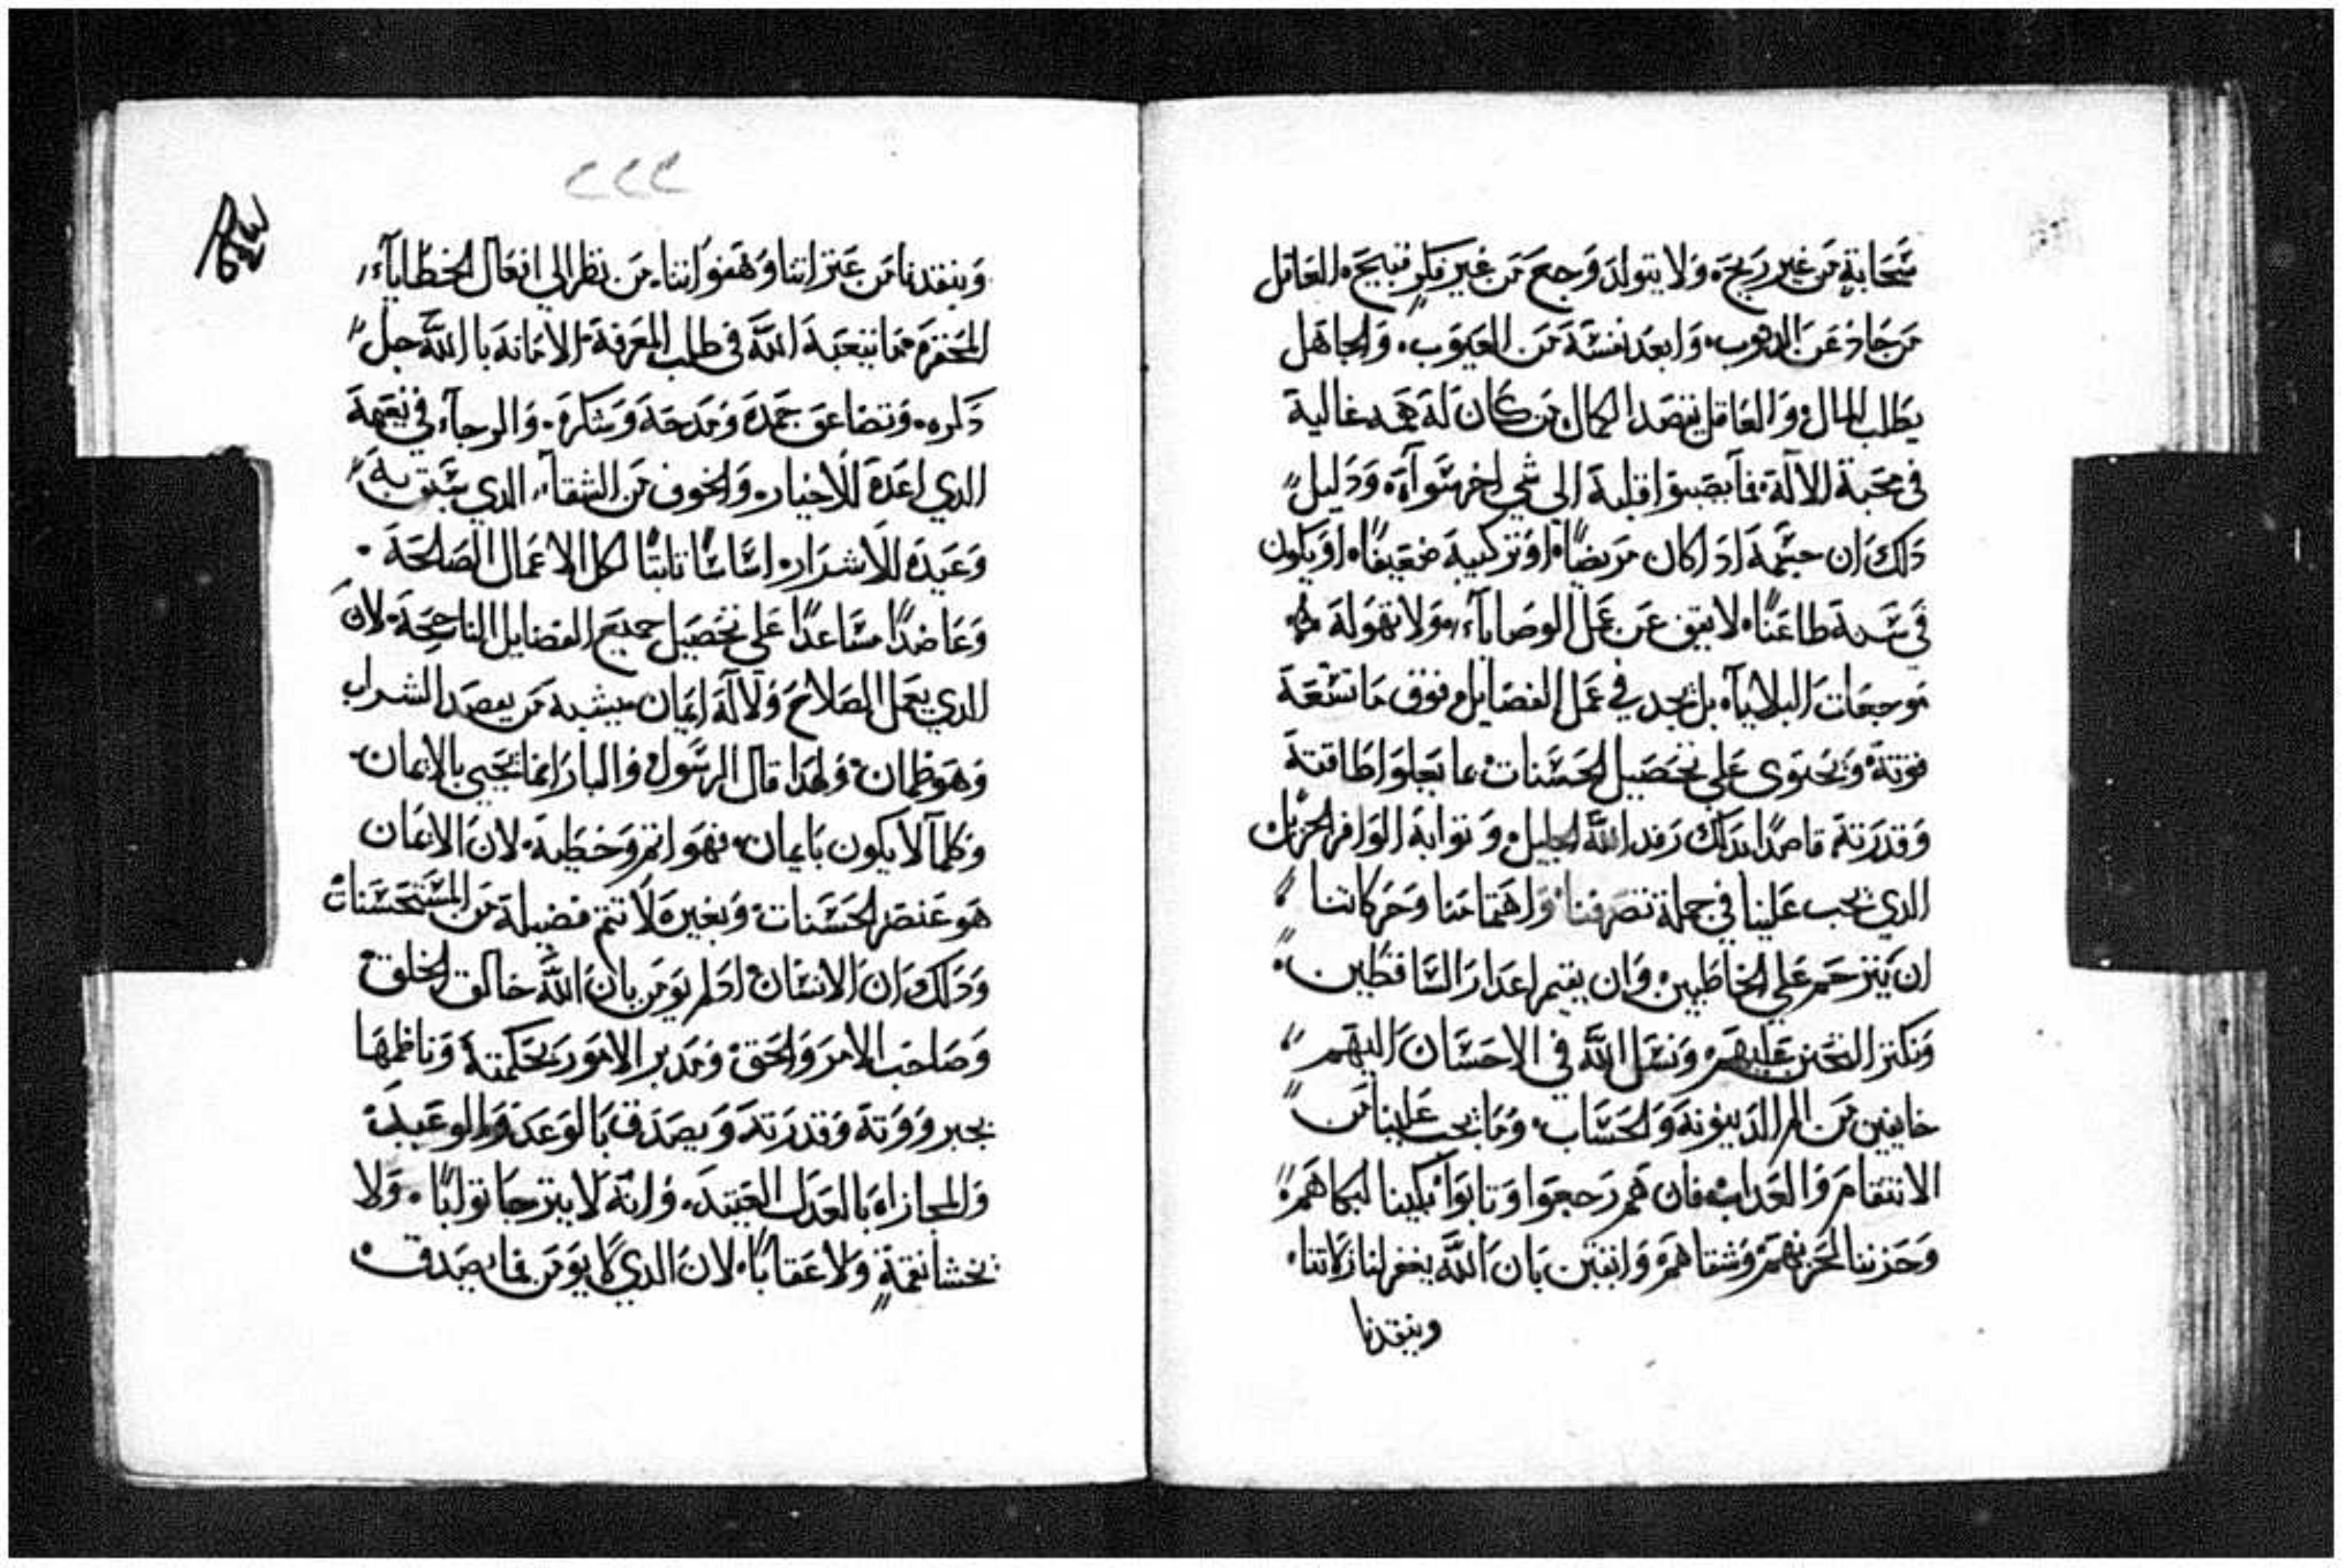 سَحَابةٍ من غير ريحَه ولا يتولد وَجع من غير فكرٍ قبيحَه العَاقل
من حَاد عَن الدنوب وَابعد نفسَة من العيوب. وَالجاهَل
يَطلب المال وَالعَاقل يقصَد الكمال من كان لَه همه غالية
في محَبة الالَة. فما يصبوا قلبة الي شي اخر سَوآه. وَدَليل
دَلك ان جسَمة ادَا كان مَريضًا. او تركيبة ضعيفًا. او يكون
في سَنة طاعنًا. لا يني عَن عَمل الوصَاياآ. وَلا تهولَة
موجعات البلاياآ. بل يجد في عَمل الفضايل فوق مَا تسَعة
قوتة. وَيحتوي عَلي تحصَيل الحَسَنات. ما يعلوا طاقتة
وَقدرتة قاصدًا بدلك رَفد الله الجليل. وَثوابة الوافر الجزيل
الدي يجب عَلينا في جملة تصَرفنا وَاهتمامنا وَحَركاتنا
ان نترحم عَلي الخاطيين. وَان نقيم اعدار السَاقطين.
وَنكتر التحنن عَليهم. وَنسَل الله في الاحسَان اليهم
خايفين من الم الدينونة وَالحسَاب. وَمَا يجب عَلينا من
الانتقام وَالعداب. فان هم رَجعوا وَتابوا بكينا لبكاهم
وَحَزننا لحَزنهم وَشقاهم. وَاثقين بان الله يغفر لنا زلاتنا.
وينقدنا
٢٢٢
وَينقدنا من عَتراتنا وَهفواتنا. من نظر الي افعال الخطاياآ.
الله في طلب المعَرفة. الامانة بالله جل
دَكره. وَتضاعف حَمدَه وَمَدحَة وَشكرَه. وَالرجاآ في نعيمة
الدي اعَدة للاخيار. وَالخوف من الشقاآ. الدي سَبق به
وَعَيده للاشرار. اسَاسًا تابتًا لكل الاعَمال الصَالحَة.
وَعَاضدًا مسَاعدًا عَلي تحصَيل جميع الفضايل الناجحَة. لان
الدي يعمل الصَلاح وَلا لَه ايمان يشبة من يقصَد الشراب
وَهو ظمان. وَلهدا قال الرسَول. وَالبار انما يحيي بالايمان.
وَكلما لا يكون بايمان. فهو اثم وَخطية. لان الايمان
هو عَنصر الحَسَنات. وَبغيره لا تتم فضيلة من المسَتحسَنات
وَدَلك ان الانسَان ادَا لم يومن بان الله خالق الخلق.
وَصَاحب الامر وَالحَق. وَمدبر الامور بحَكمتة. وَناظمهَا
بجبروته وَقدرتة وَيصَدق بالوَعد وَالوعَيد.
وَالمجازاه بالعدل العَتيد. وَانه لا يترجا توابًا. وَلا
يخشا نقمَة. وَلا عَقابًا. لان الدي لا يومن فما يصَدق.